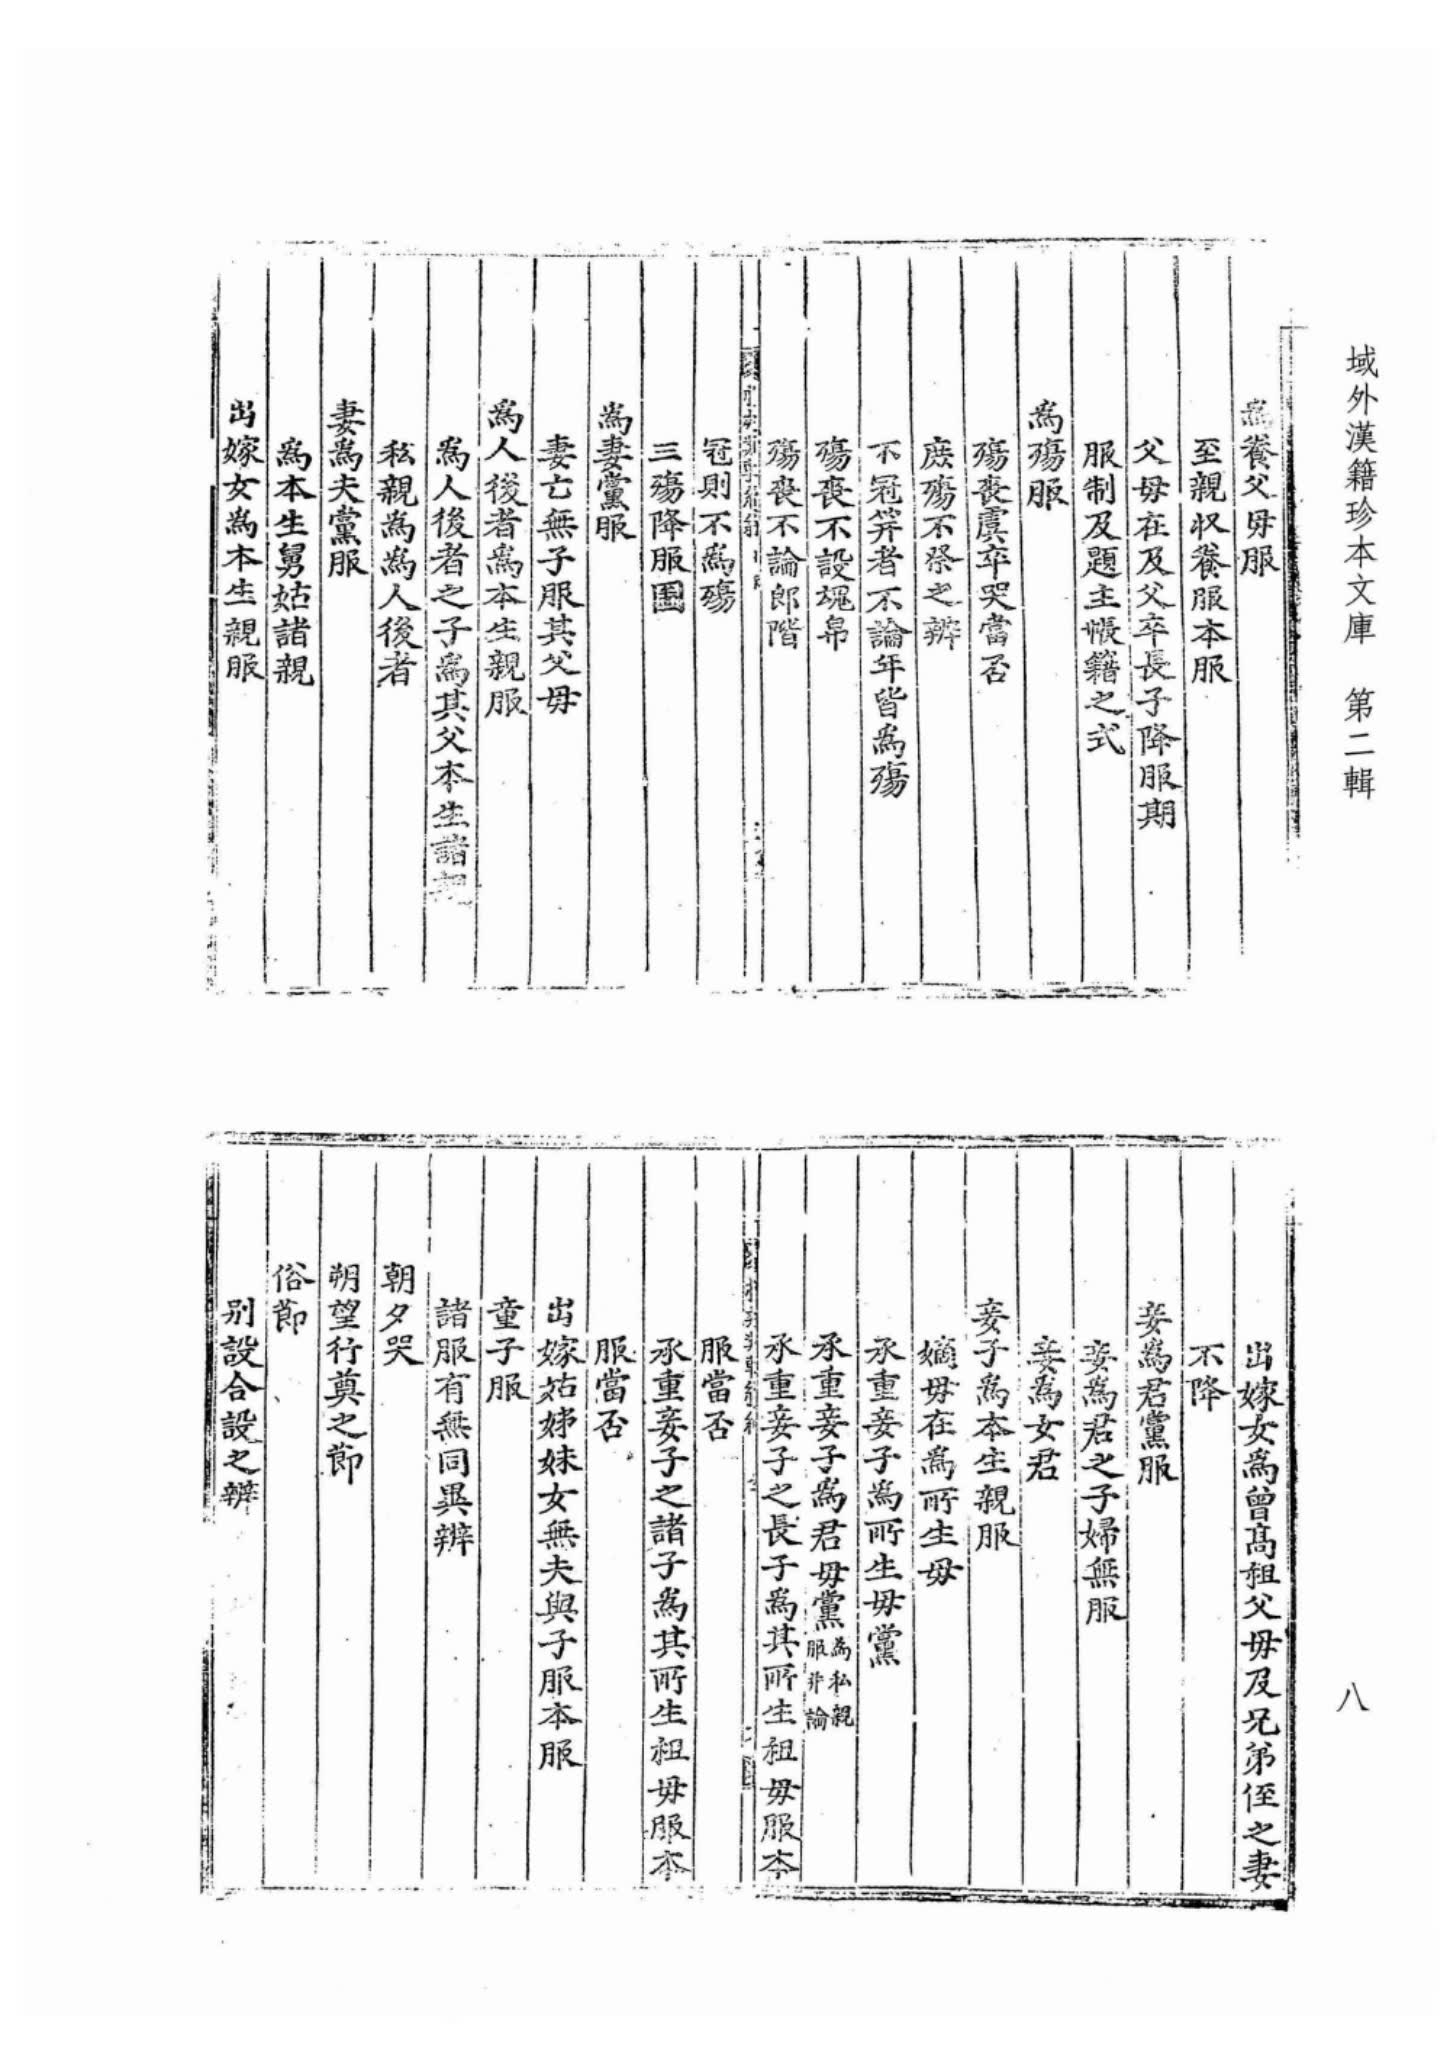 域外漢籍珍本文庫　第二輯
為養父母服
至親収養服本服
父母在及父卒長子降服期
服制及題主帳籍之式
為殤服
殤喪虞卒哭當否
庶殤不祭之辨
不冠筓者不論年皆為殤
殤喪不設魂帛
殤喪不論郎階
冠則不為殤
三殤降服圖
為妻黨服
妻亡無子服其父母
為人後者為本生親服
為人後者之子為其父本生諸
私親為為人後者
妻為夫黨服
為本生舅姑諸親
出嫁女為本生親服
出嫁女為曾高祖父母及兄弟侄之妻
不降
妾為君黨服
妾為君之子婦無服
妾為女君
妾子為本生親服
嫡母在為所生母
承重妾子為所生母黨
承重妾子為君母黨為私親服非論
承重妾子之長子為其所生祖母服本
服當否
承重妾子之諸子為其所生祖母服本
服當否
出嫁姑姊妹女無夫與子服本服
童子服
諸服有無同異辨
朝夕哭
朔望行奠之節
俗節
別設合設之辨
八